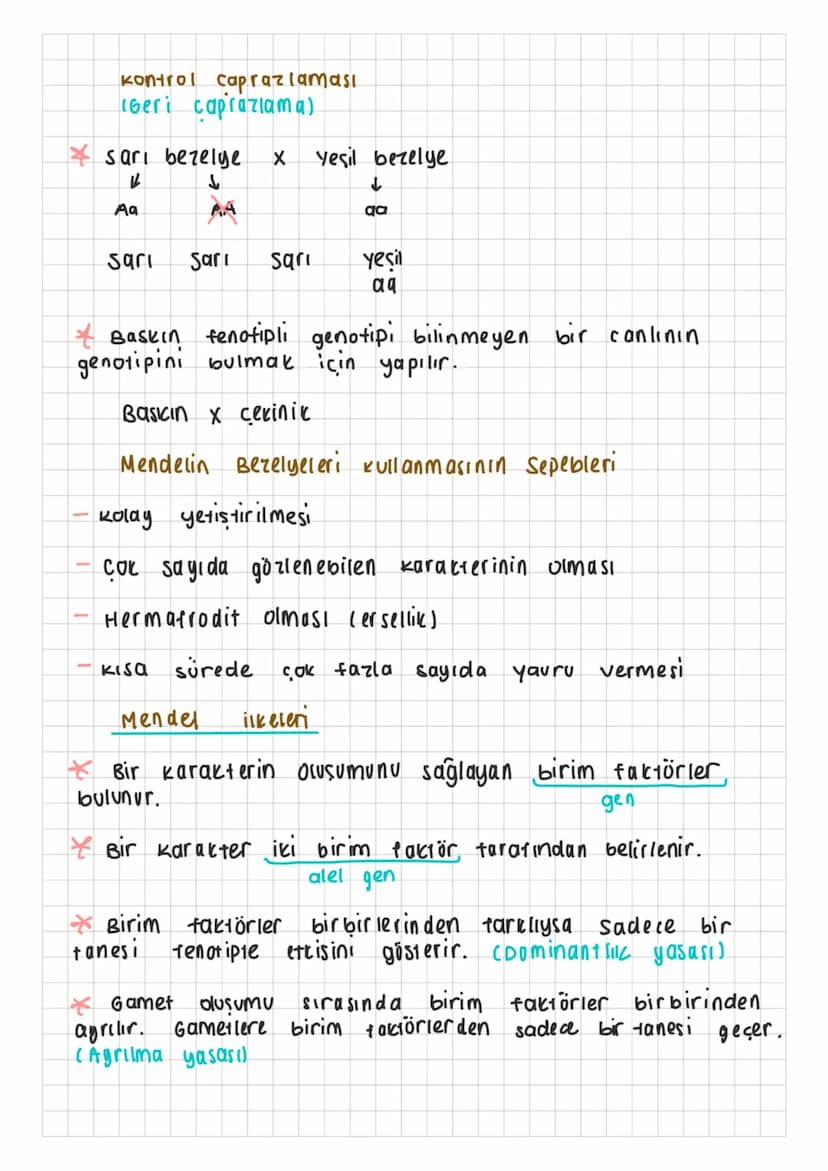 Kontrol Çaprazlaması
(Geri çaprazlama)
* sarı bezelye x yeşil bezelye
↓ ↓ ↓
Aa AA aa
sarı sarı sarı yeşil
aa
* Baskın fenotipli genotipi bilinmeyen bir canlının
genotipini bulmak için yapılır.
Baskın x çekinik
Mendelin Bezelyeleri kullanmasının Sepebleri
- Kolay yetiştirilmesi
- Çok sayıda gözlenebilen karakterinin olması
- Hermafrodit olması (ersellik)
- Kısa sürede çok fazla sayıda yavru vermesi
Mendel ilkeleri
* Bir karakterin oluşumunu sağlayan birim faktörler
bulunur. gen
* Bir karakter iki birim faktör tarafından belirlenir.
alel gen
* Birim faktörler birbirlerinden farklıysa sadece bir
tanesi fenotipte etkisini gösterir. (Dominantlık yasası)
* Gamet oluşumu sırasında birim faktörler birbirinden
ayrılır. Gametlere birim faktörlerden sadece bir tanesi geçer.
(Ayrılma yasası)